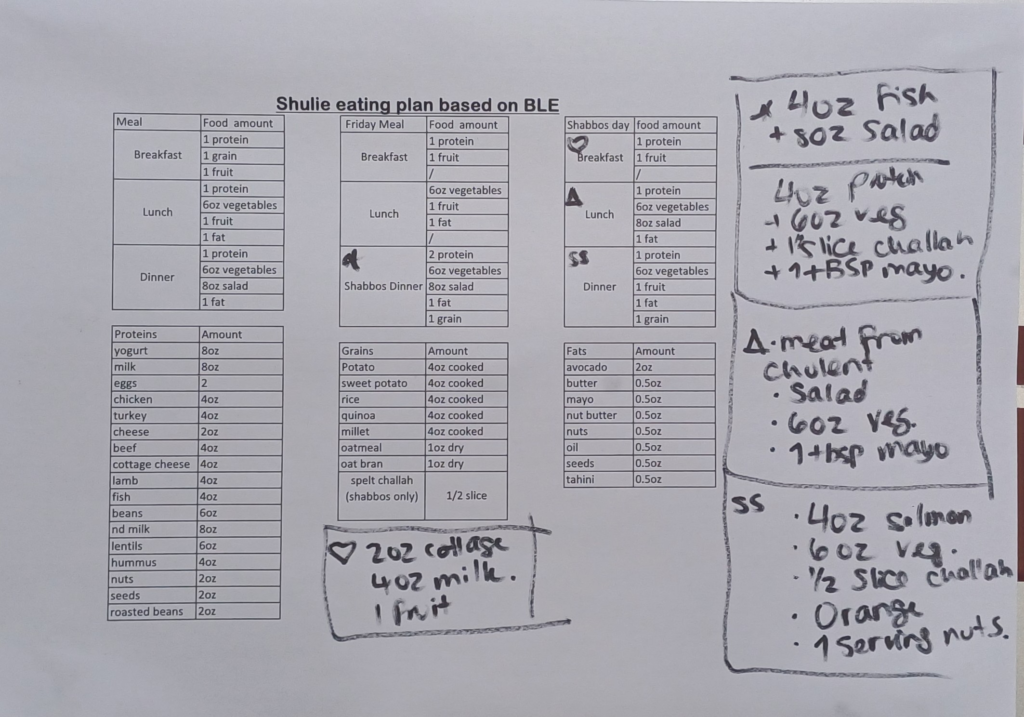 Shulie eating plan based on BLE
Meal Food amount
Breakfast
1 protein
1 grain
1 fruit
Lunch
1 protein
6oz vegetables
1 fruit
1 fat
Dinner
1 protein
6oz vegetables
8oz salad
1 fat
Friday Meal Food amount
Breakfast
1 protein
1 fruit
/
Lunch
6oz vegetables
1 fruit
1 fat
/
Shabbos Dinner
2 protein
6oz vegetables
8oz salad
1 fat
1 grain
Shabbos day food amount
♡ Breakfast
1 protein
1 fruit
/
Δ Lunch
1 protein
6oz vegetables
8oz salad
1 fat
SS Dinner
1 protein
6oz vegetables
1 fruit
1 fat
1 grain
Proteins Amount
yogurt 8oz
milk 8oz
eggs 2
chicken 4oz
turkey 4oz
cheese 2oz
beef 4oz
cottage cheese 4oz
lamb 4oz
fish 4oz
beans 6oz
nd milk 8oz
lentils 6oz
hummus 4oz
nuts 2oz
seeds 2oz
roasted beans 2oz
Grains Amount
Potato 4oz cooked
sweet potato 4oz cooked
rice 4oz cooked
quinoa 4oz cooked
millet 4oz cooked
oatmeal 1oz dry
oat bran 1oz dry
spelt challah
(shabbos only) 1/2 slice
Fats Amount
avocado 2oz
butter 0.5oz
mayo 0.5oz
nut butter 0.5oz
nuts 0.5oz
oil 0.5oz
seeds 0.5oz
tahini 0.5oz
♡ 2oz cottage
4oz milk.
1 fruit
* 4oz Fish
+ 8oz Salad
4oz protein
+ 6oz veg
+ slice challah
+ 1 tBSP mayo.
Δ • meat from
chulent
• Salad
• 6oz veg.
• 1 tbsp mayo
SS • 4oz salmon
• 6oz veg.
• 1/2 Slice challah
• Orange
• 1 Serving nuts.